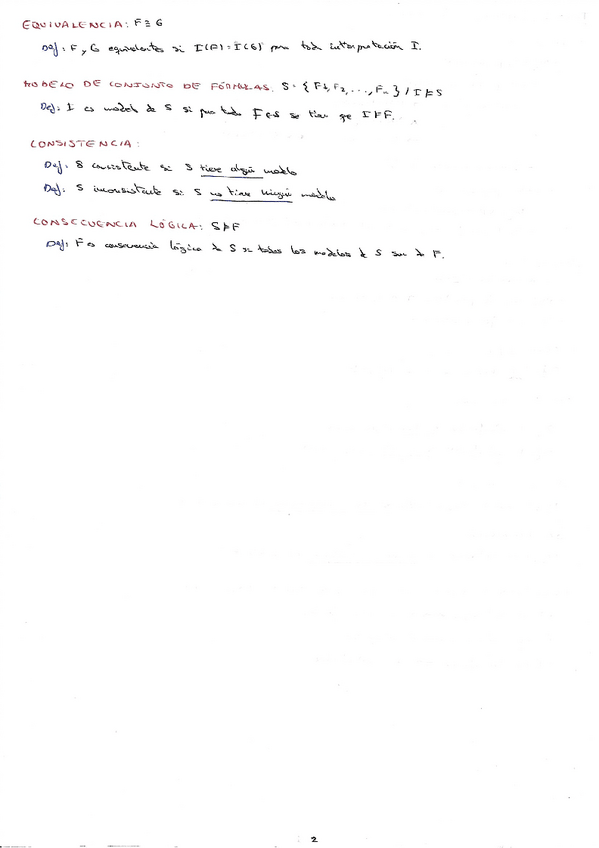 EQUIVALENCIA: F ≡ G
Def: F y G equivalentes si I(F) = I(G) para toda interpretación I.
MODELO DE CONJUNTO DE FÓRMULAS. S = {F1, F2, ..., Fn} / I ⊨ S
Def: I es model de S si para todo F ∈ S se tiene que I ⊨ F.
CONSISTENCIA:
Def: S consistente si S tiene algún modelo
Def: S inconsistente si S no tiene ningún modelo
CONSECUENCIA LÓGICA: S ⊨ F
Def: F es consecuencia lógica de S si todos los modelos de S son de F.
2